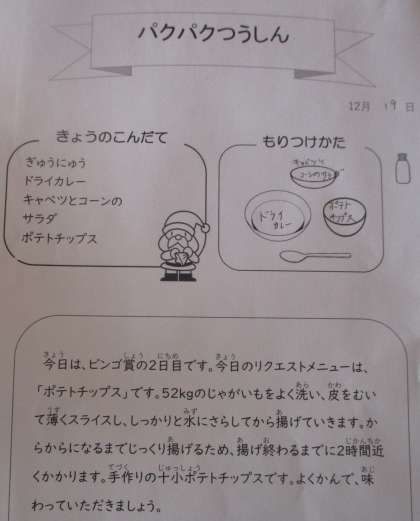 パクパクつうしん
12月 19日
きょうのこんだて
ぎゅうにゅう
ドライカレー
キャベツとコーンの
サラダ
ポテトチップス
もりつけかた
キャベツと
コーンのサラダ
ドライ
カレー
ポテト
チップス
今日は、ビンゴ賞の2日目です。今日のリクエストメニューは、
「ポテトチップス」です。52kgのじゃがいもをよく洗い、皮をむい
て薄くスライスし、しっかりと水にさらしてから揚げていきます。か
らからになるまでじっくり揚げるため、揚げ終わるまでに2時間近
くかかります。手作りの十小ポテトチップスです。よくかんで、味
わっていただきましょう。